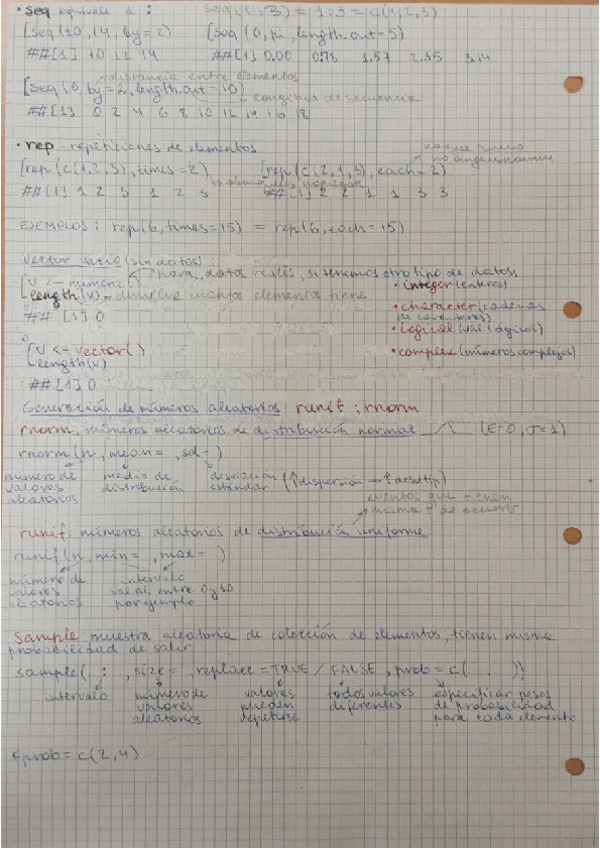 • seq equivale a : seq(1,3) = 1:3 = c(1,2,3)
[seq(10,14, by=2) [seq(0,pi,length.out=5)
##[1] 10 12 14 ##[1] 0.00 0.78 1.57 2.35 3.14
distancia entre elementos
[seq(0,by=2,length.out=10) longitud de secuencia
##[1] 0 2 4 6 8 10 12 14 16 18
• rep - repeticiones de elementos
[rep(c(1,2,3),times=2) [rep(c(2,1,3),each=2)
##[1] 1 2 3 1 2 3 ##[1] 2 2 1 1 3 3
EJEMPLOS: rep(6,times=15) = rep(6,each=15)
vector vacío (sin datos):
[v <- numeric() para datos reales, si tenemos otro tipo de datos
length(v) - devuelve cuántos elementos tiene • integer (enteros)
## [1] 0 • character (cadenas de caracteres)
• logical (val lógicos)
[v <- vector() • complex (números complejos)
length(v)
##[1] 0
Generación de números aleatorios runif ; rnorm
rnorm, números aleatorios de distribución normal (E=0, σ=1)
rnorm(n, mean= , sd= )
número de valores aleatorios media de distribución desviación estándar (↑dispersión → ↑desv.tip)
eventos que tienen misma P de ocurrir
runif, números aleatorios de distribución uniforme
runif(n, min= , max= )
número de valores aleatorios intervalo val al, entre 0 y 10 por ejemplo
Sample, muestra aleatoria de colección de elementos, tienen misma
probabilidad de salir
sample(..: , size= , replace=TRUE / FALSE, prob=c(... ))
intervalo número de valores aleatorios valores pueden repetirse todos valores diferentes especificar pesos de probabilidad para cada elemento
prob=c(2,4)